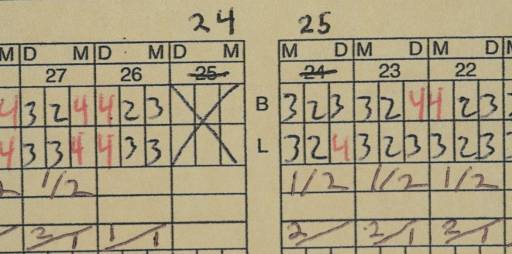 24 25
M D M D M D M M D M D D M
27 26 25 24 23 22
4 3 2 4 4 2 3 B 3 2 3 3 2 4 4 2 3
4 3 3 4 4 3 3 L 3 2 4 3 2 3 3 2 3
2 1/2 1/2 1/2 1/2
2/1 1/1 2/ 2/1 2/1